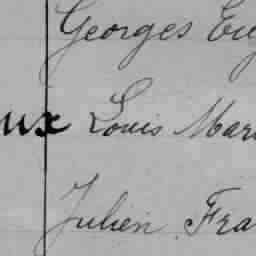 Georges Eug
ux Louis Mari
Julien Fra